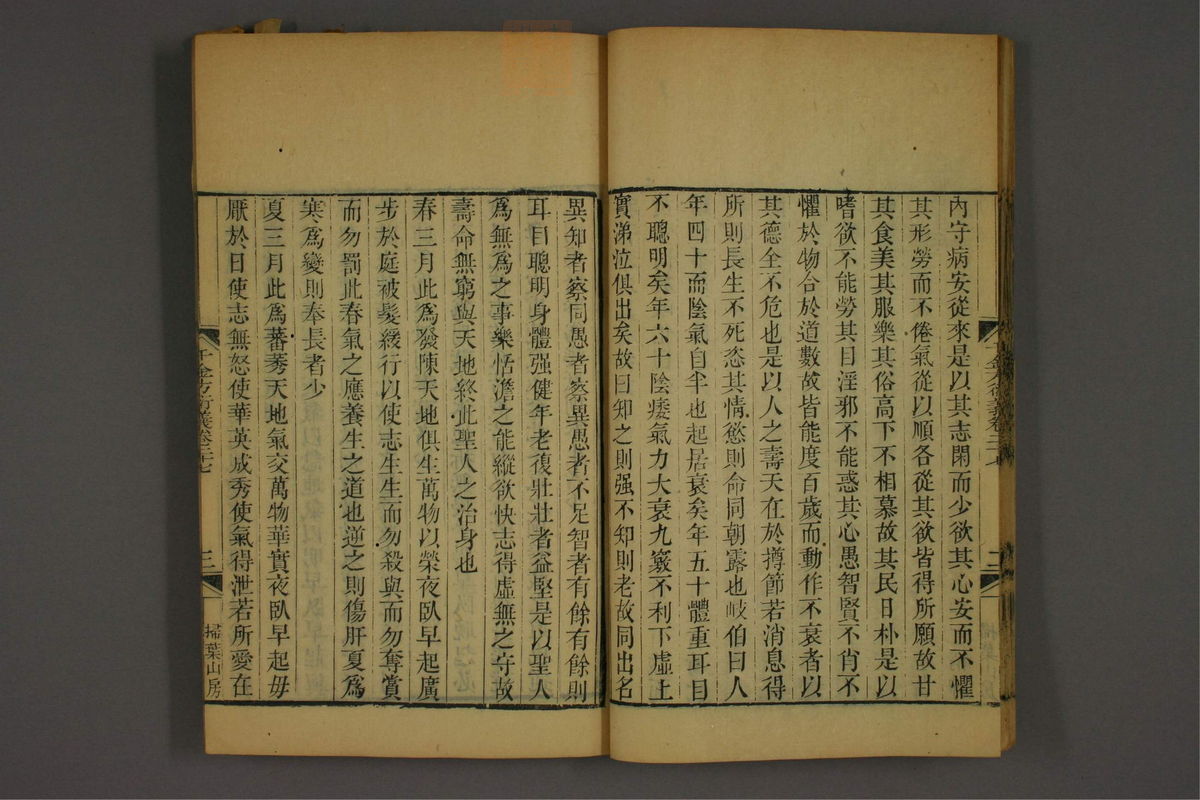 內守病安從來是以其志閑而少欲其心安而不懼
其形勞而不倦氣從以順各從其欲皆得所願故甘
其食美其服樂其俗高下不相慕故其民日朴是以
嗜欲不能勞其目淫邪不能惑其心愚智賢不肖不
懼於物合於道數故皆能度百歲而動作不衰者以
其德全不危也是以人之壽夭在於撙節若消息得
所則長生不死恣其情慾則命同朝露也岐伯曰人
年四十而陰氣自半也起居衰矣年五十體重耳目
不聰明矣年六十陰痿氣力大衰九竅不利下虛上
實涕泣俱出矣故曰知之則强不知則老故同出名
異知者察同愚者察異愚者不足智者有餘有餘則
耳目聰明身體强健年老復壯壯者益堅是以聖人
爲無爲之事樂恬澹之能縱欲快志得虛無之守故
壽命無窮與天地終此聖人之治身也
春三月此爲發陳天地俱生萬物以榮夜臥早起廣
步於庭被髮緩行以使志生生而勿殺與而勿奪賞
而勿罰此春氣之應養生之道也逆之則傷肝夏爲
寒爲變則奉長者少
夏三月此爲蕃莠天地氣交萬物華實夜臥早起毋
厭於日使志無怒使華英成秀使氣得泄若所愛在
千金方衍義卷二十七
三
掃葉山房